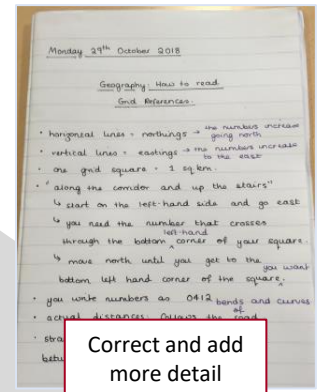 Monday 29th October 2018
Geography: How to read
Grid References.
• horizontal lines = northings → the numbers increase
going north
• vertical lines = eastings → the numbers increase
to the east
• one grid square = 1 sq km.
• "along the corridor and up the stairs"
↳ start on the left-hand side and go east
↳ you need the number that crosses
left-hand
through the bottom ^ corner of your square.
↳ move north until you get to the
you want
bottom left hand corner of the square ^.
• you write numbers as 0412
bends and curves
of
• actual distances: follows the road
• stra
betw
Correct and add
more detail